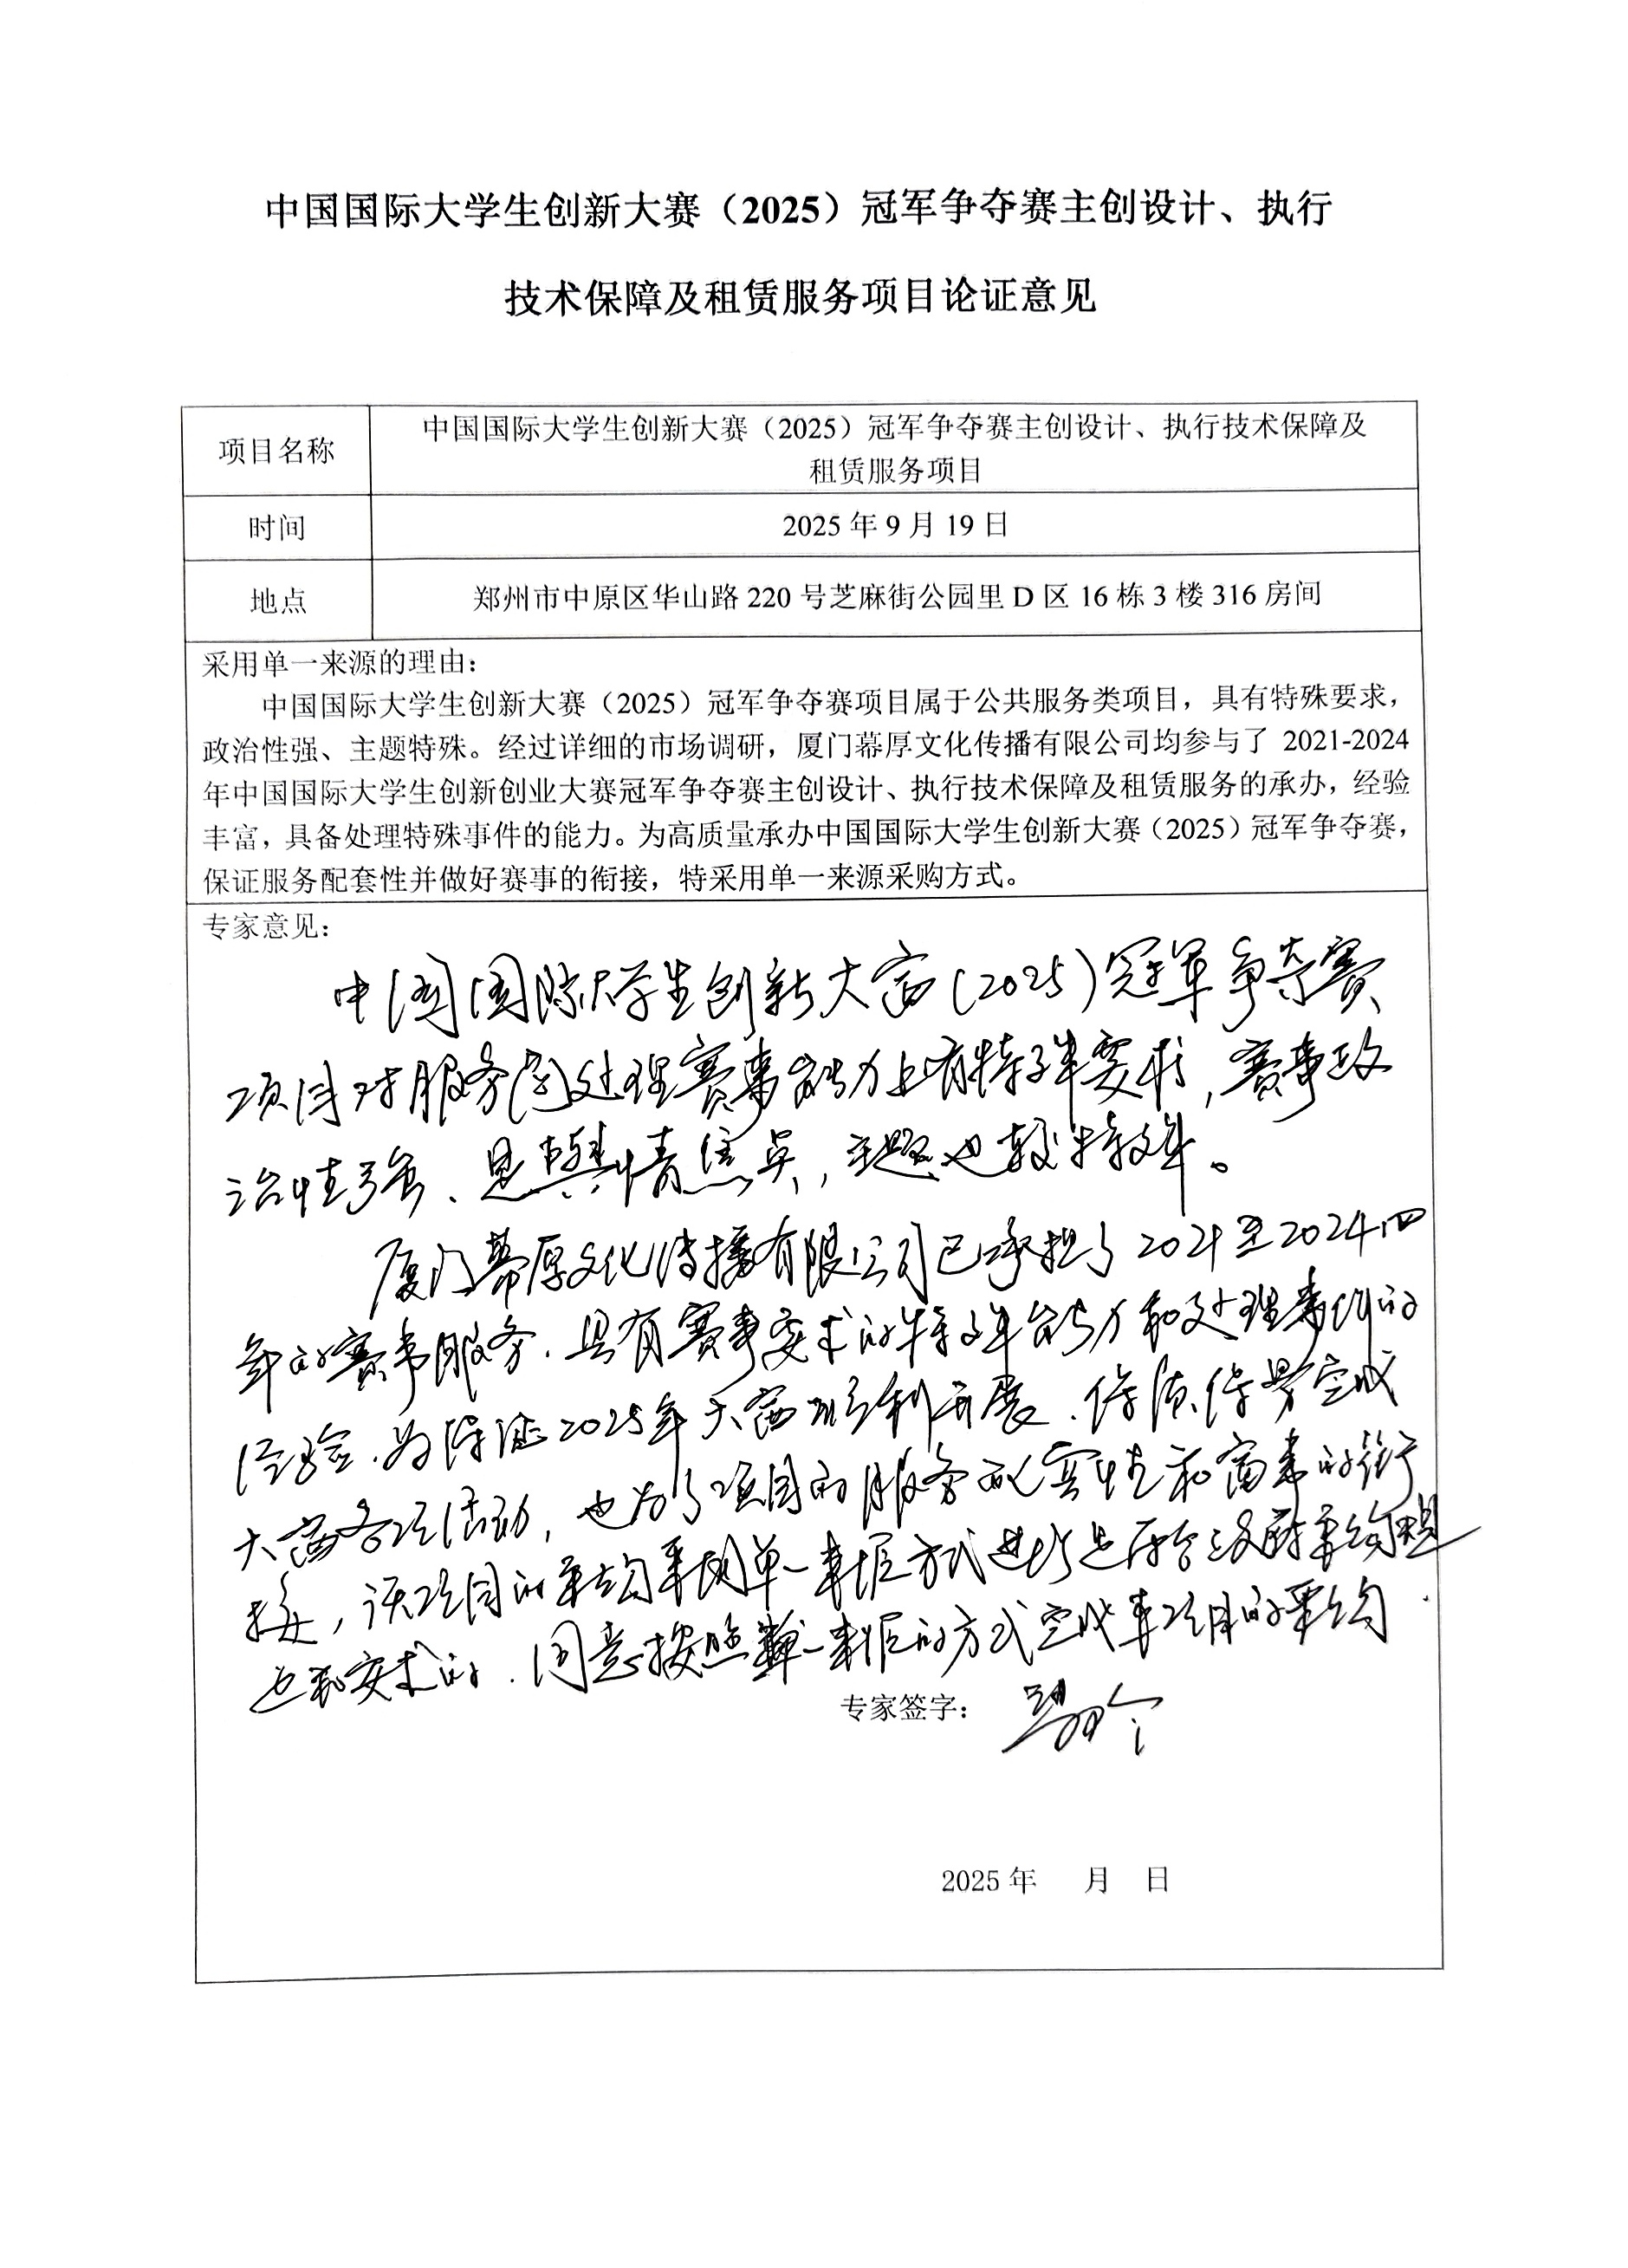 中国国际大学生创新大赛（2025）冠军争夺赛主创设计、执行
技术保障及租赁服务项目论证意见
项目名称
中国国际大学生创新大赛（2025）冠军争夺赛主创设计、执行技术保障及
租赁服务项目
时间
2025 年 9 月 19 日
地点
郑州市中原区华山路 220 号芝麻街公园里 D 区 16 栋 3 楼 316 房间
采用单一来源的理由：
中国国际大学生创新大赛（2025）冠军争夺赛项目属于公共服务类项目，具有特殊要求，
政治性强、主题特殊。经过详细的市场调研，厦门幕厚文化传播有限公司均参与了 2021-2024
年中国国际大学生创新创业大赛冠军争夺赛主创设计、执行技术保障及租赁服务的承办，经验
丰富，具备处理特殊事件的能力。为高质量承办中国国际大学生创新大赛（2025）冠军争夺赛，
保证服务配套性并做好赛事的衔接，特采用单一来源采购方式。
专家意见：
中国国际大学生创新大赛(2025)冠军争夺赛
项目对服务商处理赛事能力上有特殊要求，赛事政
治性强、是舆情焦点，主题也较特殊。
厦门幕厚文化传播有限公司已承担了2021至2024四
年的赛事服务，具有赛事要求的特殊能力和处理事件的
经验，为保证2025年大赛顺利开展，保质保量完成
大赛各项活动，也为了项目的服务配套性和赛事的衔
接，该项目的采购采用单一来源方式进行是符合政府采购
要求的，同意按照单一来源的方式完成本项目的采购
专家签字：
2025 年 月 日